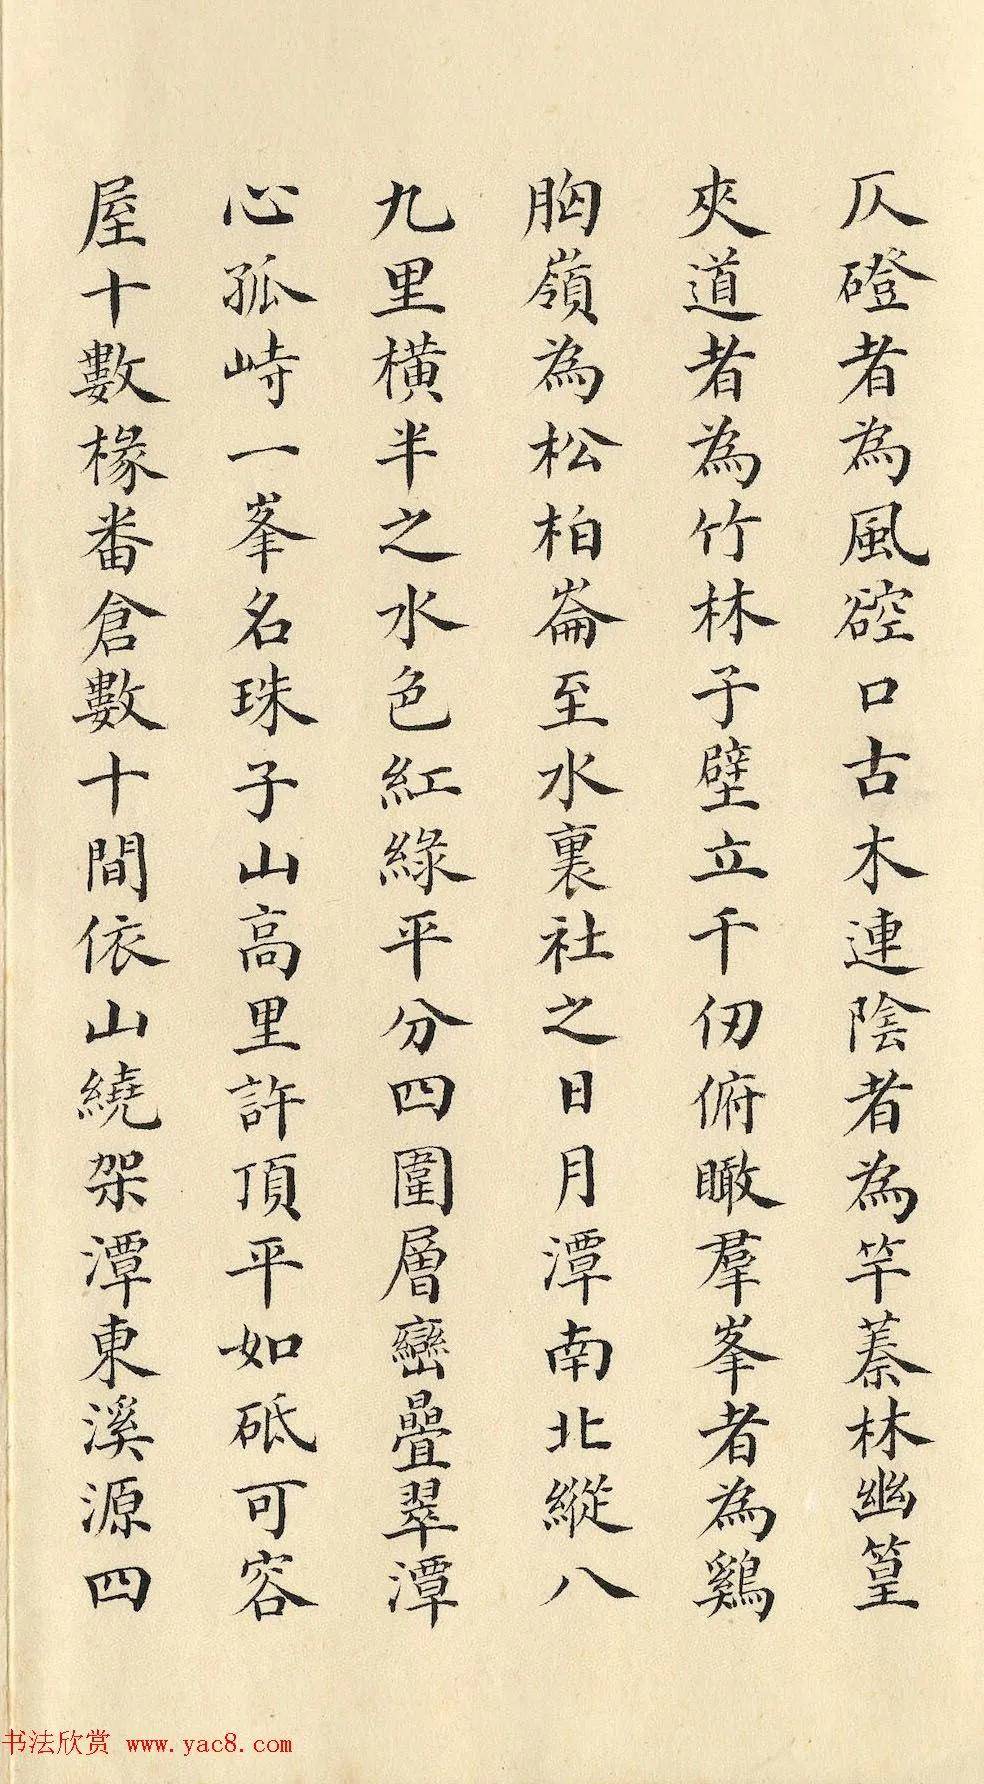 仄磴者為風硿口古木連陰者為竿蓁林幽篁
夾道者為竹林子壁立千仞俯瞰羣峯者為鷄
胸嶺為松柏崙至水裏社之日月潭南北縱八
九里橫半之水色紅綠平分四圍層巒疊翠潭
心孤峙一峯名珠子山高里許頂平如砥可容
屋十數椽番倉數十間依山繞架潭東溪源四
书法欣赏 www.yac8.com